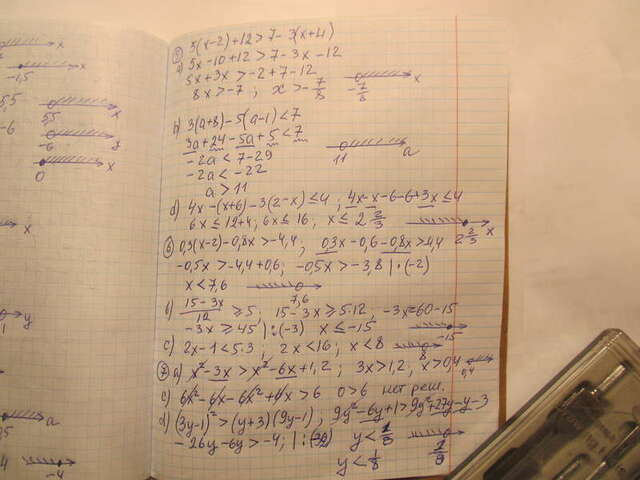 x
x
-1,5
5,5
x
5,5
-6
x
-6
x
0
x
y
1
a
4
-4
⑤ 5(x-2)+12>7-3(x+4)
a) 5x-10+12>7-3x-12
5x+3x>-2+7-12
8x>-7 ; x>-7/8 x
-7/8
b) 3(a+8)-5(a-1)<7
3a+24-5a+5<7
-2a<7-29 11 a
-2a<-22
a>11
d) 4x-(x+6)-3(2-x)≤4 ; 4x-x-6-6+3x≤4
6x≤12+4; 6x≤16; x≤2 2/3 2 2/3 x
⑥ 0,3(x-2)-0,8x>-4,4 ; 0,3x-0,6-0,8x>4,4
-0,5x>-4,4+0,6; -0,5x>-3,8 |·(-2)
x<7,6 7,6
b) (15-3x)/12 ≥5; 15-3x≥5·12, -3x=60-15
-3x≥45 | :(-3) x≤-15 -15
c) 2x-1<5·3; 2x<16; x<8 8
⑦ a) x²-3x>x²-6x+1,2; 3x>1,2; x>0,4 0,4
c) 6x²-6x-6x²+6x>6 0>6 нет реш.
d) (3y-1)²>(y+3)(9y-1), 9y²-6y+1>9y²+27y-y-3
-26y-6y>-4; | : y<
y<1/8